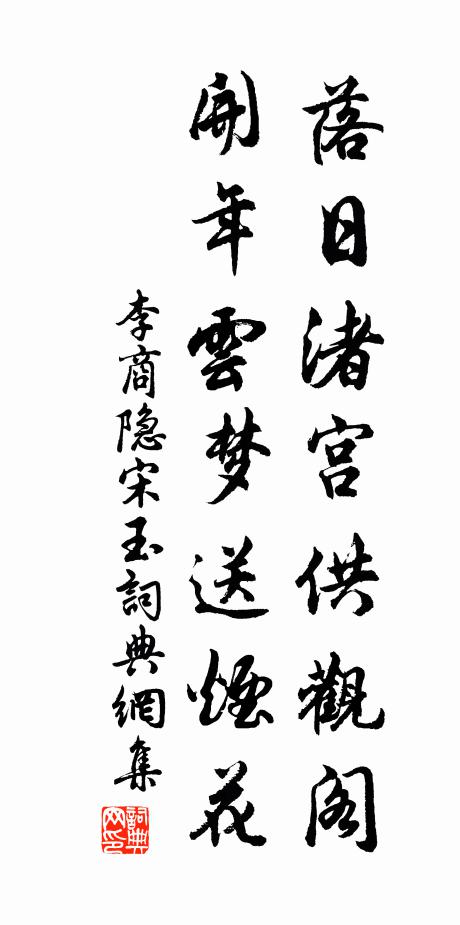 落日渚宫供觀阁
開年雲梦送煙花
李商隐宋玉詞典網集
詞典网印